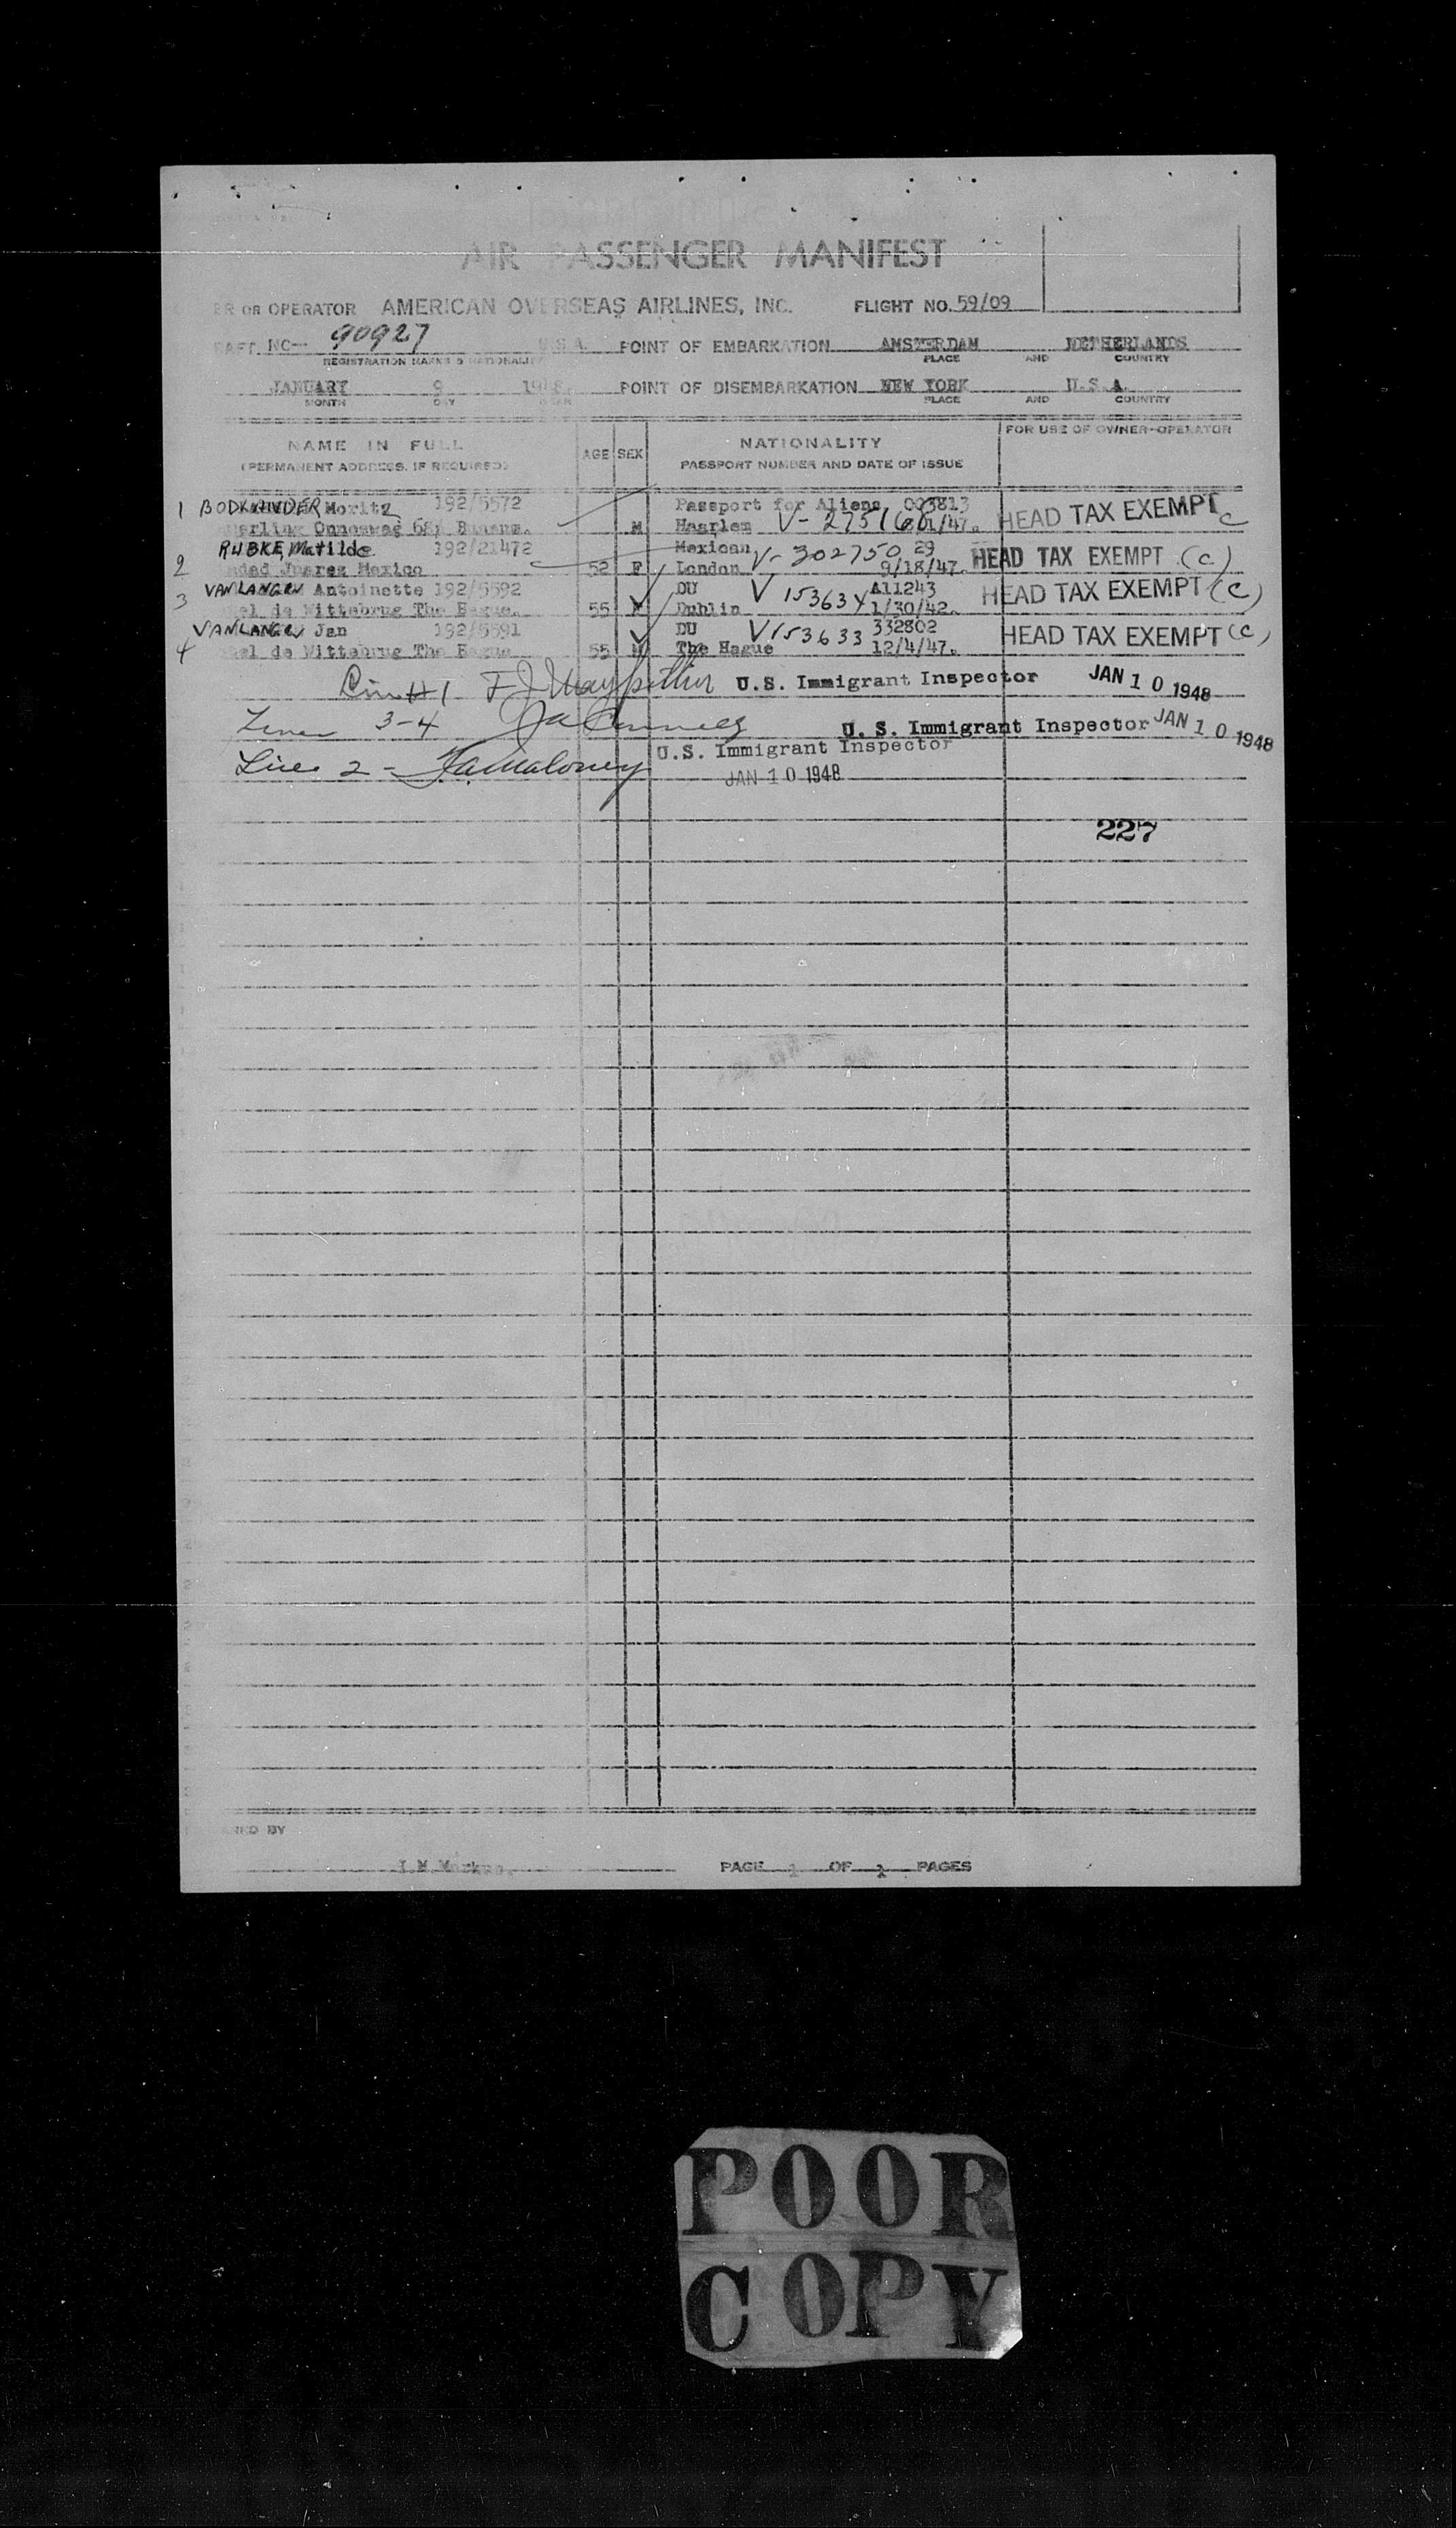 AIR PASSENGER MANIFEST
ER OR OPERATOR AMERICAN OVERSEAS AIRLINES, INC. FLIGHT NO. 59/09
AFT NC- 90927 U.S.A. POINT OF EMBARKATION AMSTERDAM NETHERLANDS
REGISTRATION MARKS & NATIONALIT PLACE AND COUNTRY
JANUARY 9 1948. POINT OF DISEMBARKATION NEW YORK U.S.A.
MONTH DAY YEAR PLACE AND COUNTRY
NAME IN FULL AGE SEX NATIONALITY FOR USE OF OWNER-OPERATOR
(PERMANENT ADDRESS, IF REQUIRED) PASSPORT NUMBER AND DATE OF ISSUE
1 Moritz 192/5572 Passport for Aliens 003813 HEAD TAX EXEMPT C
68, M Haarlem V- /47.
RUBKE, Matilde 192/21472 Mexican V- 302750 29 HEAD TAX EXEMPT (C)
2 dad Juarez Mexico 52 F London 9/18/47.
VANLANGEN Antoinette 192/5592 DU V 153634 A11243 HEAD TAX EXEMPT (C)
3 el de Wittebrug The Hague. 55 Dublin 1/30/42.
VANLANGEN Jan 192/5591 DU V153633 332802 HEAD TAX EXEMPT (C)
4 el de Wittebrug The Hague 55 M The Hague 12/4/47.
U.S. Immigrant Inspector JAN 10 1948
3-4 U. S. Immigrant Inspector JAN 10 1948
Line 2 - U.S. Immigrant Inspector
JAN 10 1948
227
RED BY
PAGE 1 OF 1 PAGES
POOR
COPY